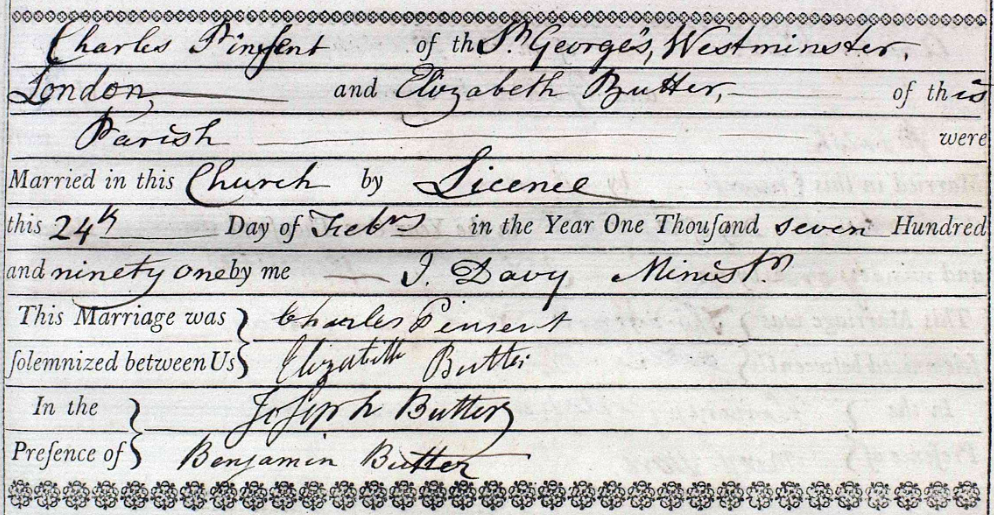 Charles Pinsent of th St. George's, Westminster,
London, and Elizabeth Butter, of this
Parish were
Married in this Church by Licence
this 24th Day of Feb'y in the Year One Thouſand seven Hundred
and ninety one by me J. Davy Minist'r
This Marriage was } Charles Pinsent
ſolemnized between Us } Elizabeth Butter
In the } Joseph Butter
Preſence of } Benjamin Butter